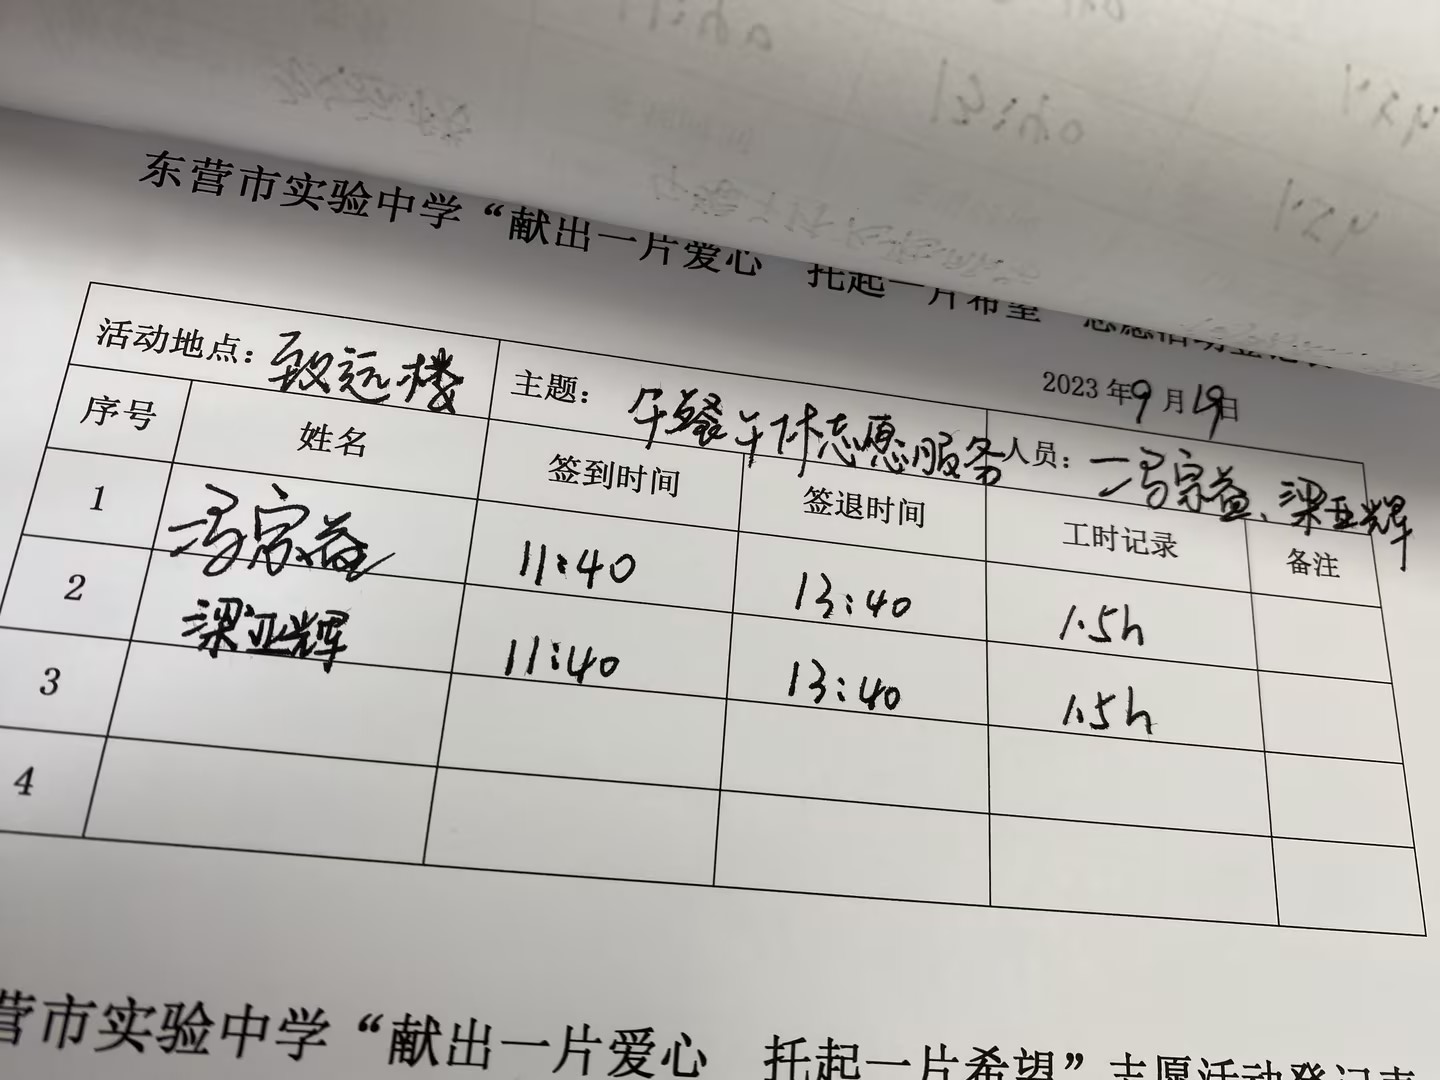 东营市实验中学“献出一片爱心 托起一片希望 志愿活动登记表
2023 年9 月19日
活动地点：致远楼 主题： 午餐午休志愿服务 人员：冯宗益、梁亚辉
序号 姓名 签到时间 签退时间 工时记录 备注
1 冯宗益 11:40 13:40 1.5h
2 梁亚辉 11:40 13:40 1.5h
3
4
营市实验中学“献出一片爱心 托起一片希望”志愿活动登记表